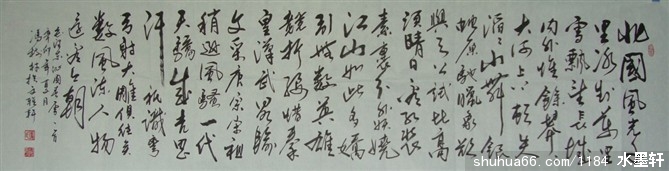 北國風光千
里冰封万里
雪飄望長城
内外惟餘莽莽
大河上下頓失
滔滔山舞銀
蛇原馳蠟象欲
與天公試比高
須晴日看紅裝
素裹分外妖嬈
江山如此多嬌
引無數英雄
競折腰惜秦
皇漢武略輸
文采唐宗宋祖
稍遜風騷一代
天驕成吉思
汗祇識彎
弓射大雕俱往矣
數風流人物
還看今朝
shuhua66.com/1184 水墨轩